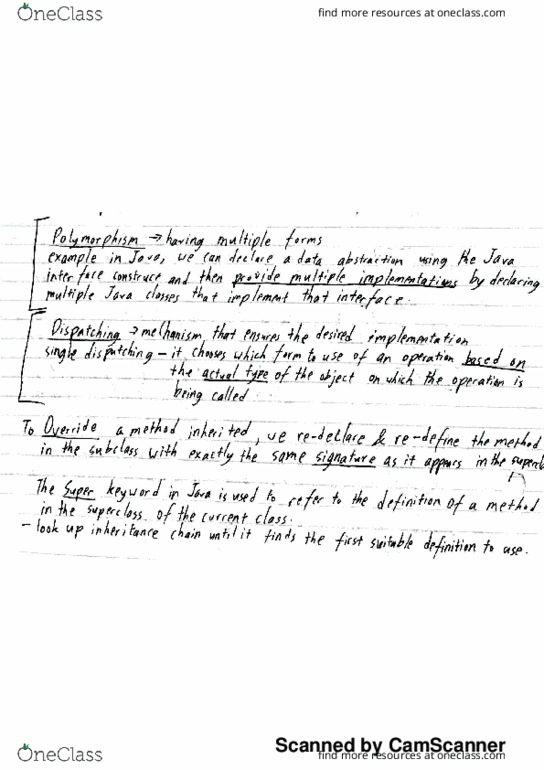 OneClass
find more resources at oneclass.com
Polymorphism → having multiple forms
example in Java, we can declare a data abstraction using the Java
interface construce and then provide multiple implementations by declaring
multiple Java classes that implement that interface.
Dispatching → mechanism that ensures the desired implementation
single dispatching – it chooses which form to use of an operation based on
the actual type of the object on which the operation is
being called
To Override a method inherited, we re-declare & re-define the method
in the subclass with exactly the same signature as it appears in the
The Super keyword in Java is used to refer to the definition of a method
in the superclass of the current class.
– look up inheritance chain until it finds the first suitable definition to use.
Scanned by CamScanner
OneClass
find more resources at oneclass.com